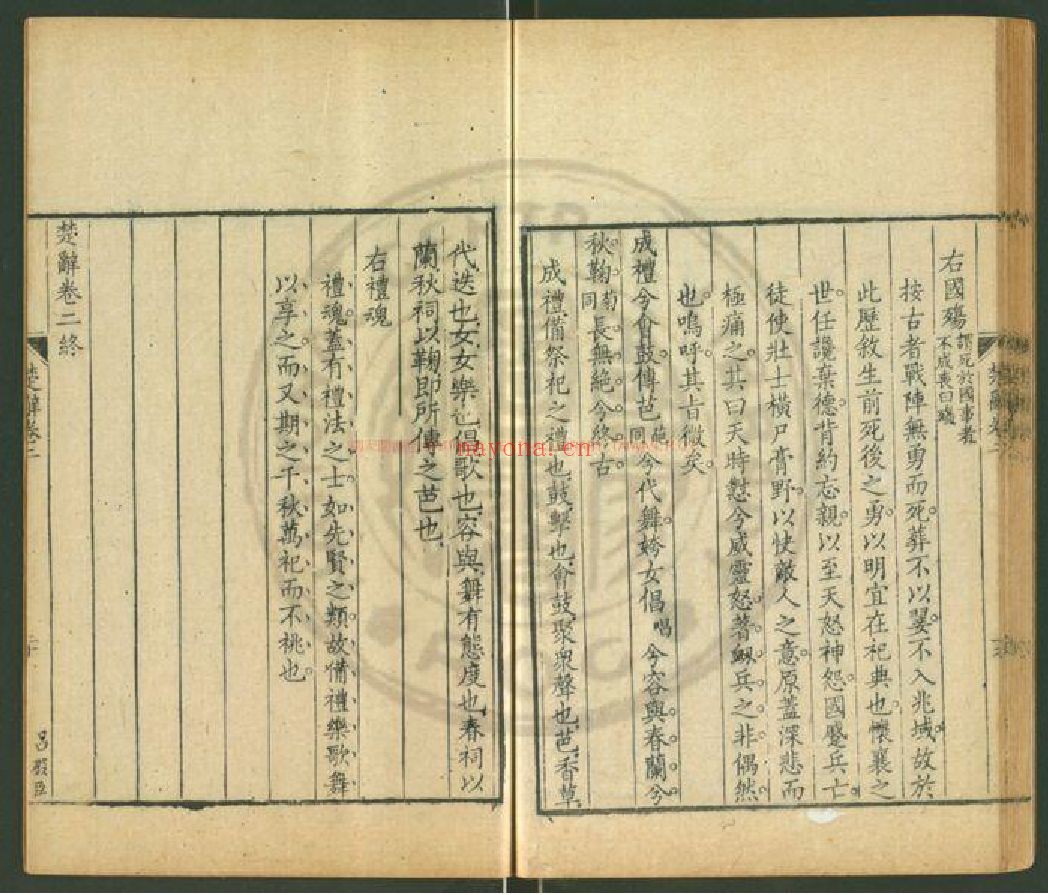 右國殤 謂死於國事者不成喪曰殤
按古者戰陣無勇而死葬不以翣不入兆域故於
此歷敘生前死後之勇以明宜在祀典也懷襄之
世任讒棄德背約忘親以至天怒神怨國蹙兵亡
徒使壯士橫尸膏野以快敵人之意原蓋深悲而
極痛之其曰天時懟兮威靈怒著敗兵之非偶然
也嗚呼其旨微矣
成禮兮會鼓傳芭葩同兮代舞姱女倡唱兮容與春蘭兮
秋鞠菊同長無絕兮終古
成禮備祭祀之禮也鼓擊也會鼓聚衆聲也芭香草
代迭也女女樂也倡歌也容與舞有態度也春祠以
蘭秋祠以鞠即所傳之芭也
右禮魂
禮魂蓋有禮法之士如先賢之類故備禮樂歌舞
以享之而又期之千秋萬祀而不祧也
楚辭卷二終
楚辭卷二
nayona.cn